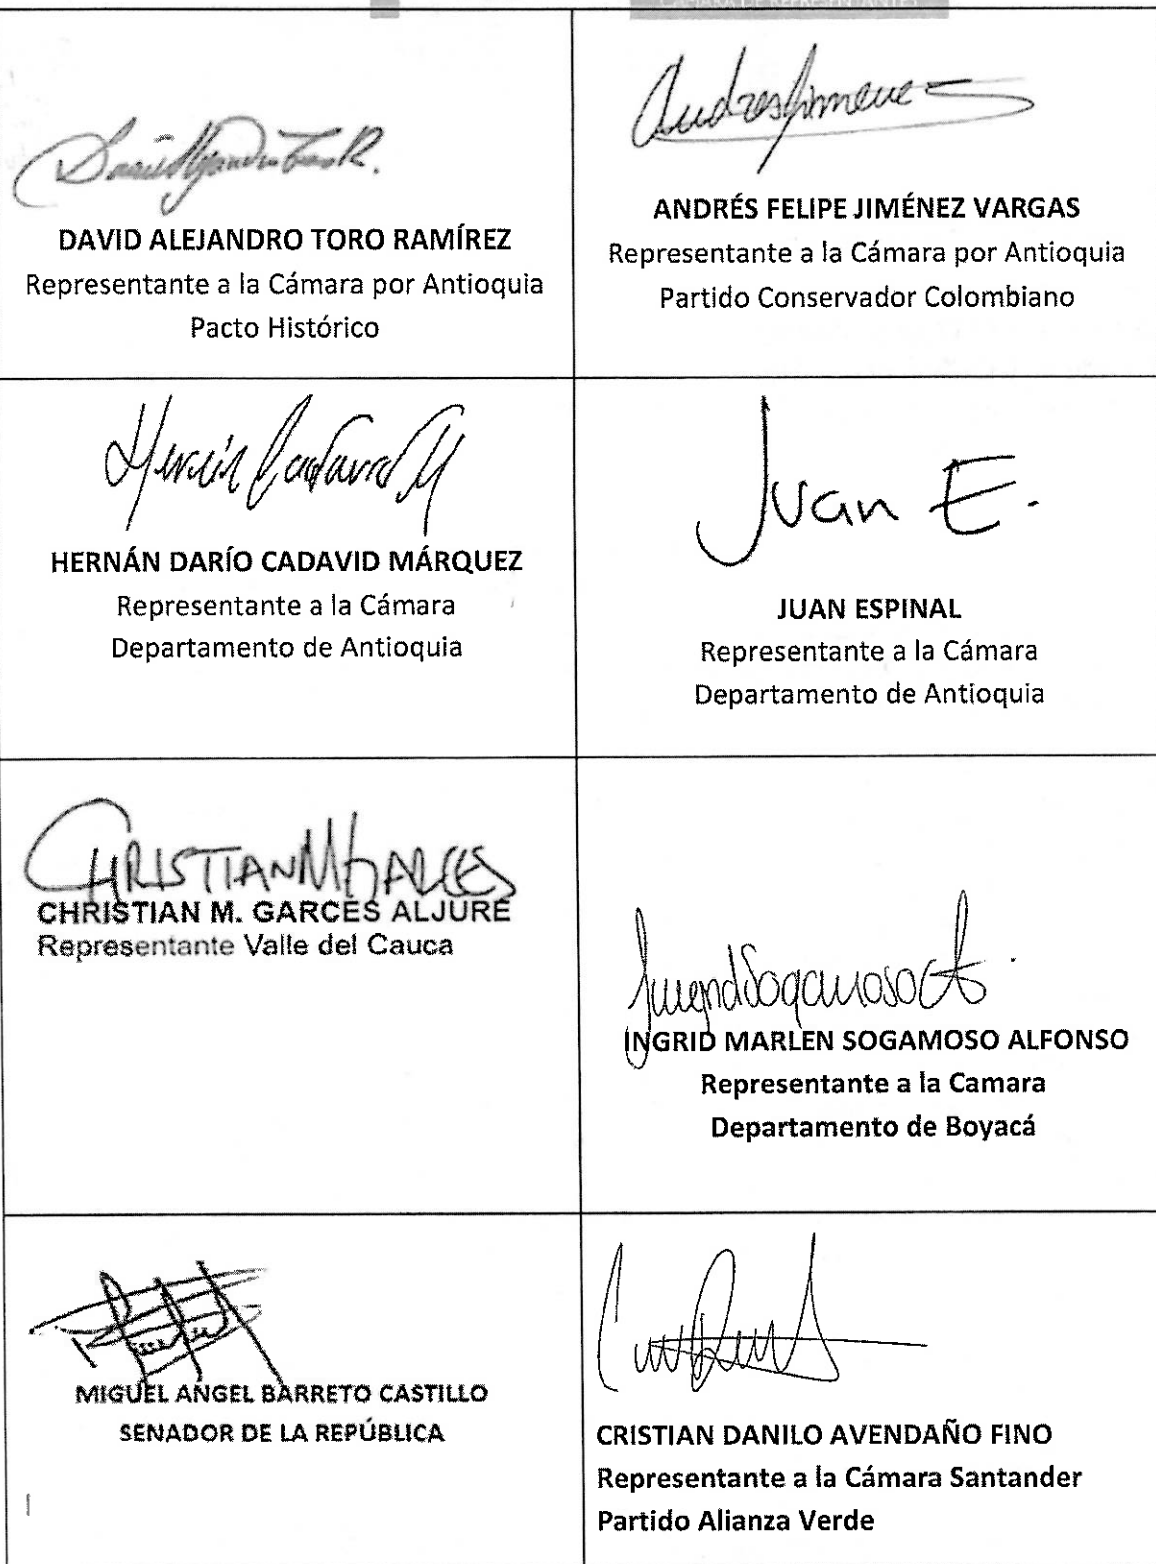 CÁMARA DE REPRESENTANTES
DAVID ALEJANDRO TORO RAMÍREZ
Representante a la Cámara por Antioquia
Pacto Histórico
Andres Jimenez
ANDRÉS FELIPE JIMÉNEZ VARGAS
Representante a la Cámara por Antioquia
Partido Conservador Colombiano
Hernán Cadavid M
HERNÁN DARÍO CADAVID MÁRQUEZ
Representante a la Cámara
Departamento de Antioquia
Juan E.
JUAN ESPINAL
Representante a la Cámara
Departamento de Antioquia
CHRISTIAN M GARCES
CHRISTIAN M. GARCES ALJURE
Representante Valle del Cauca
Ingrid Sogamoso A
INGRID MARLEN SOGAMOSO ALFONSO
Representante a la Camara
Departamento de Boyacá
MIGUEL ANGEL BARRETO CASTILLO
SENADOR DE LA REPÚBLICA
CRISTIAN DANILO AVENDAÑO FINO
Representante a la Cámara Santander
Partido Alianza Verde